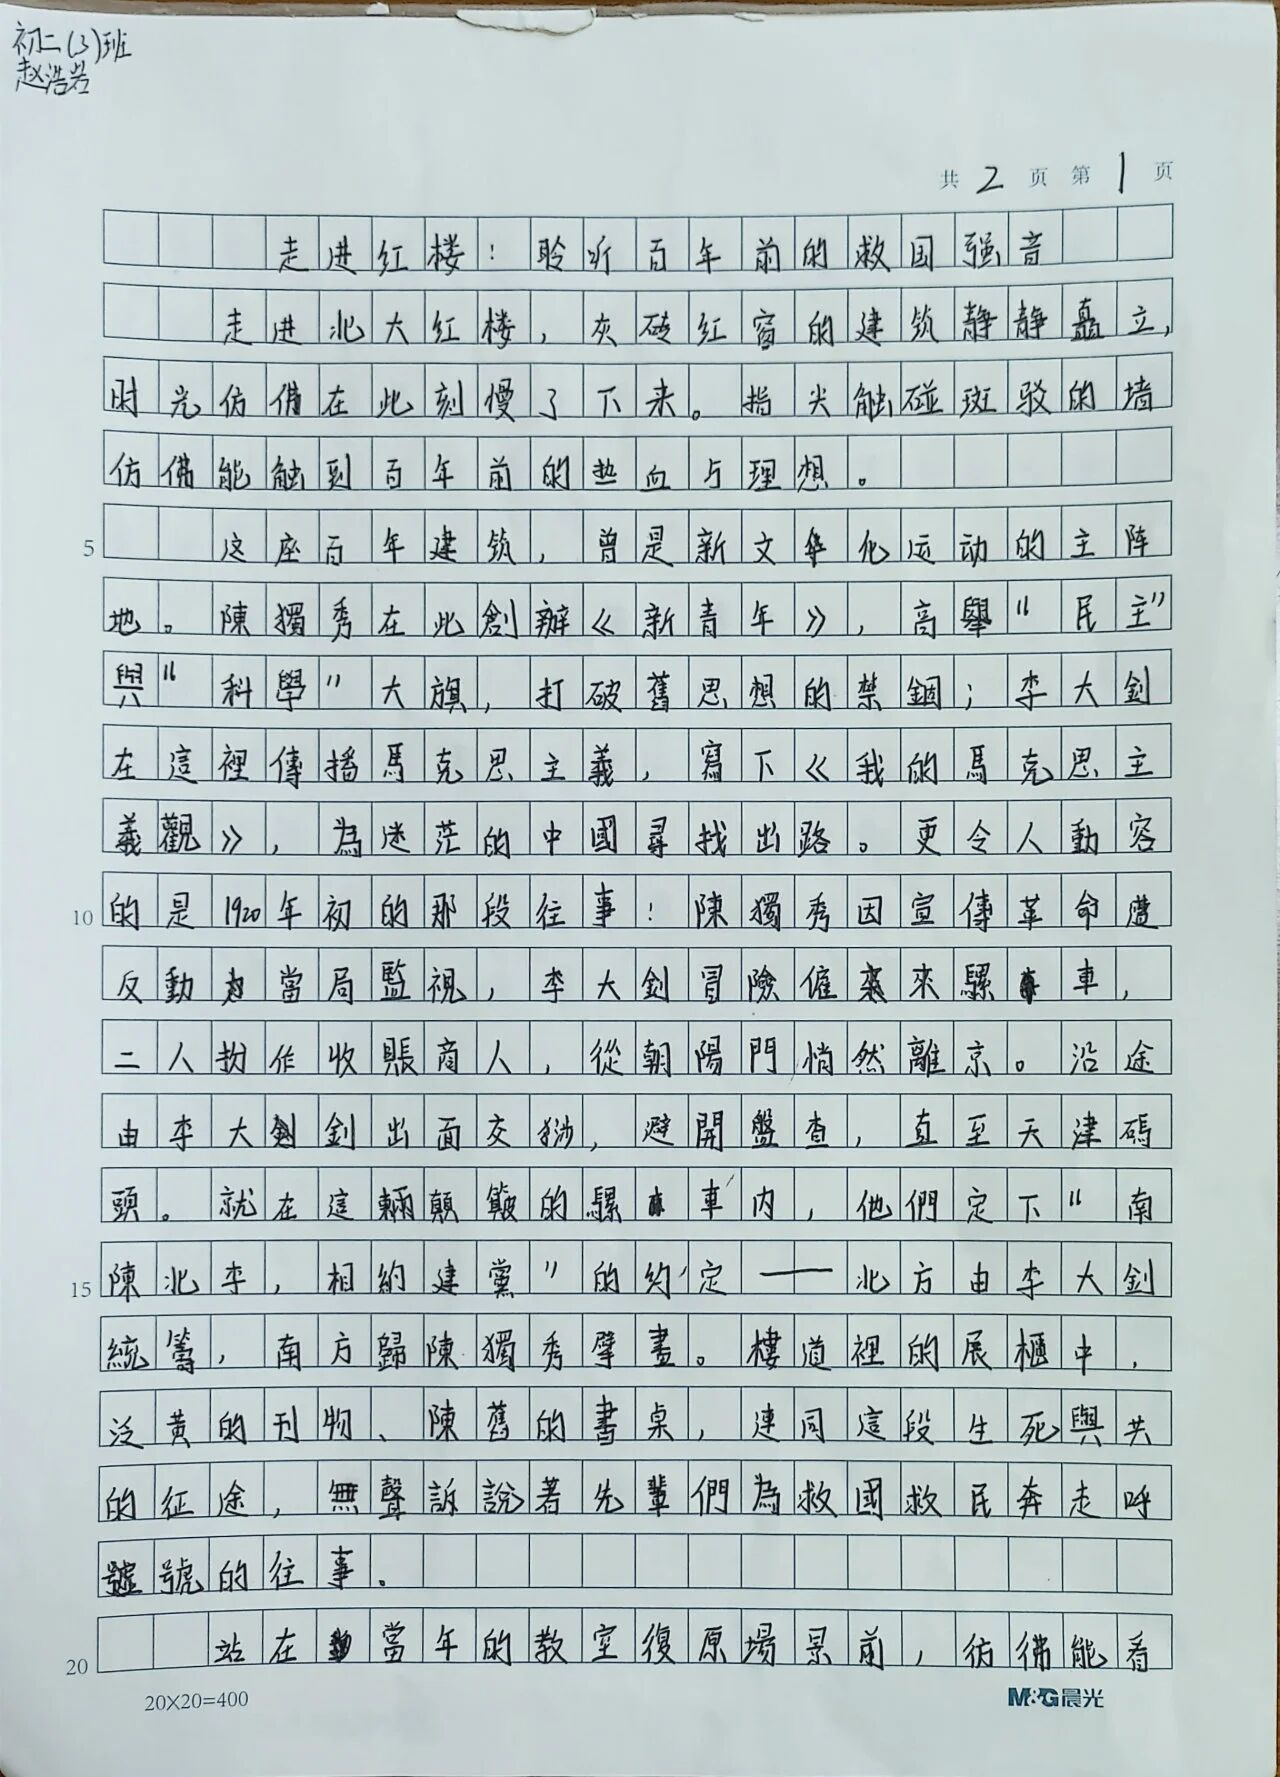 初二(3)班
赵浩岩
共 2 页 第 1 页
走进红楼：聆听百年前的救国强音
走进北大红楼，灰砖红窗的建筑静静矗立，
时光仿佛在此刻慢了下来。指尖触碰斑驳的墙
仿佛能触到百年前的热血与理想。
5 这座百年建筑，曾是新文化运动的主阵
地。陳獨秀在此創辦《新青年》，高舉“民主”
與“科學”大旗，打破舊思想的禁錮；李大釗
在這裡傳播馬克思主義，寫下《我的馬克思主
義觀》，為迷茫的中國尋找出路。更令人動容
10 的是1920年初的那段往事：陳獨秀因宣傳革命遭
反動當局監視，李大釗冒險僱來騾車，
二人扮作收賬商人，從朝陽門悄然離京。沿途
由李大釗出面交涉，避開盤查，直至天津碼
頭。就在這輛顛簸的騾車内，他們定下“南
15 陳北李，相約建黨”的約定——北方由李大釗
統籌，南方歸陳獨秀擘畫。樓道裡的展櫃中，
泛黄的刊物、陳舊的書桌，連同這段生死與共
的征途，無聲訴說著先輩們為救國救民奔走呼
號的往事。
20 站在當年的教室復原場景前，仿佛能看
20×20=400
M&G晨光